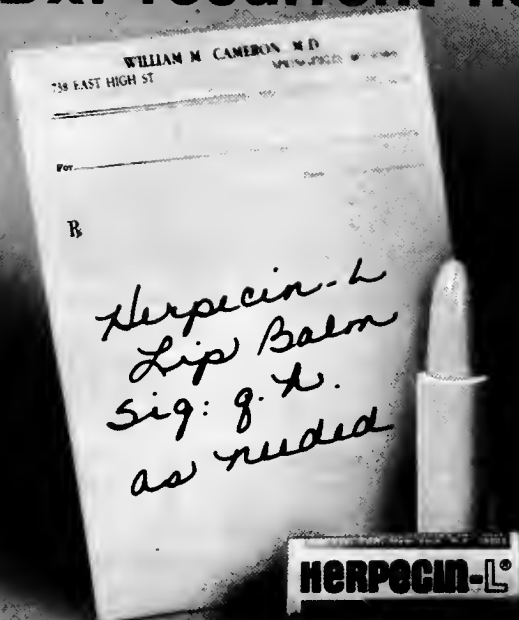 Dx: recurrent he
WILLIAM M CAMERON M D
738 EAST HIGH ST
For
℞
Herpecin-L
Lip Balm
Sig: q. h.
as needed
HERPECIN-L®